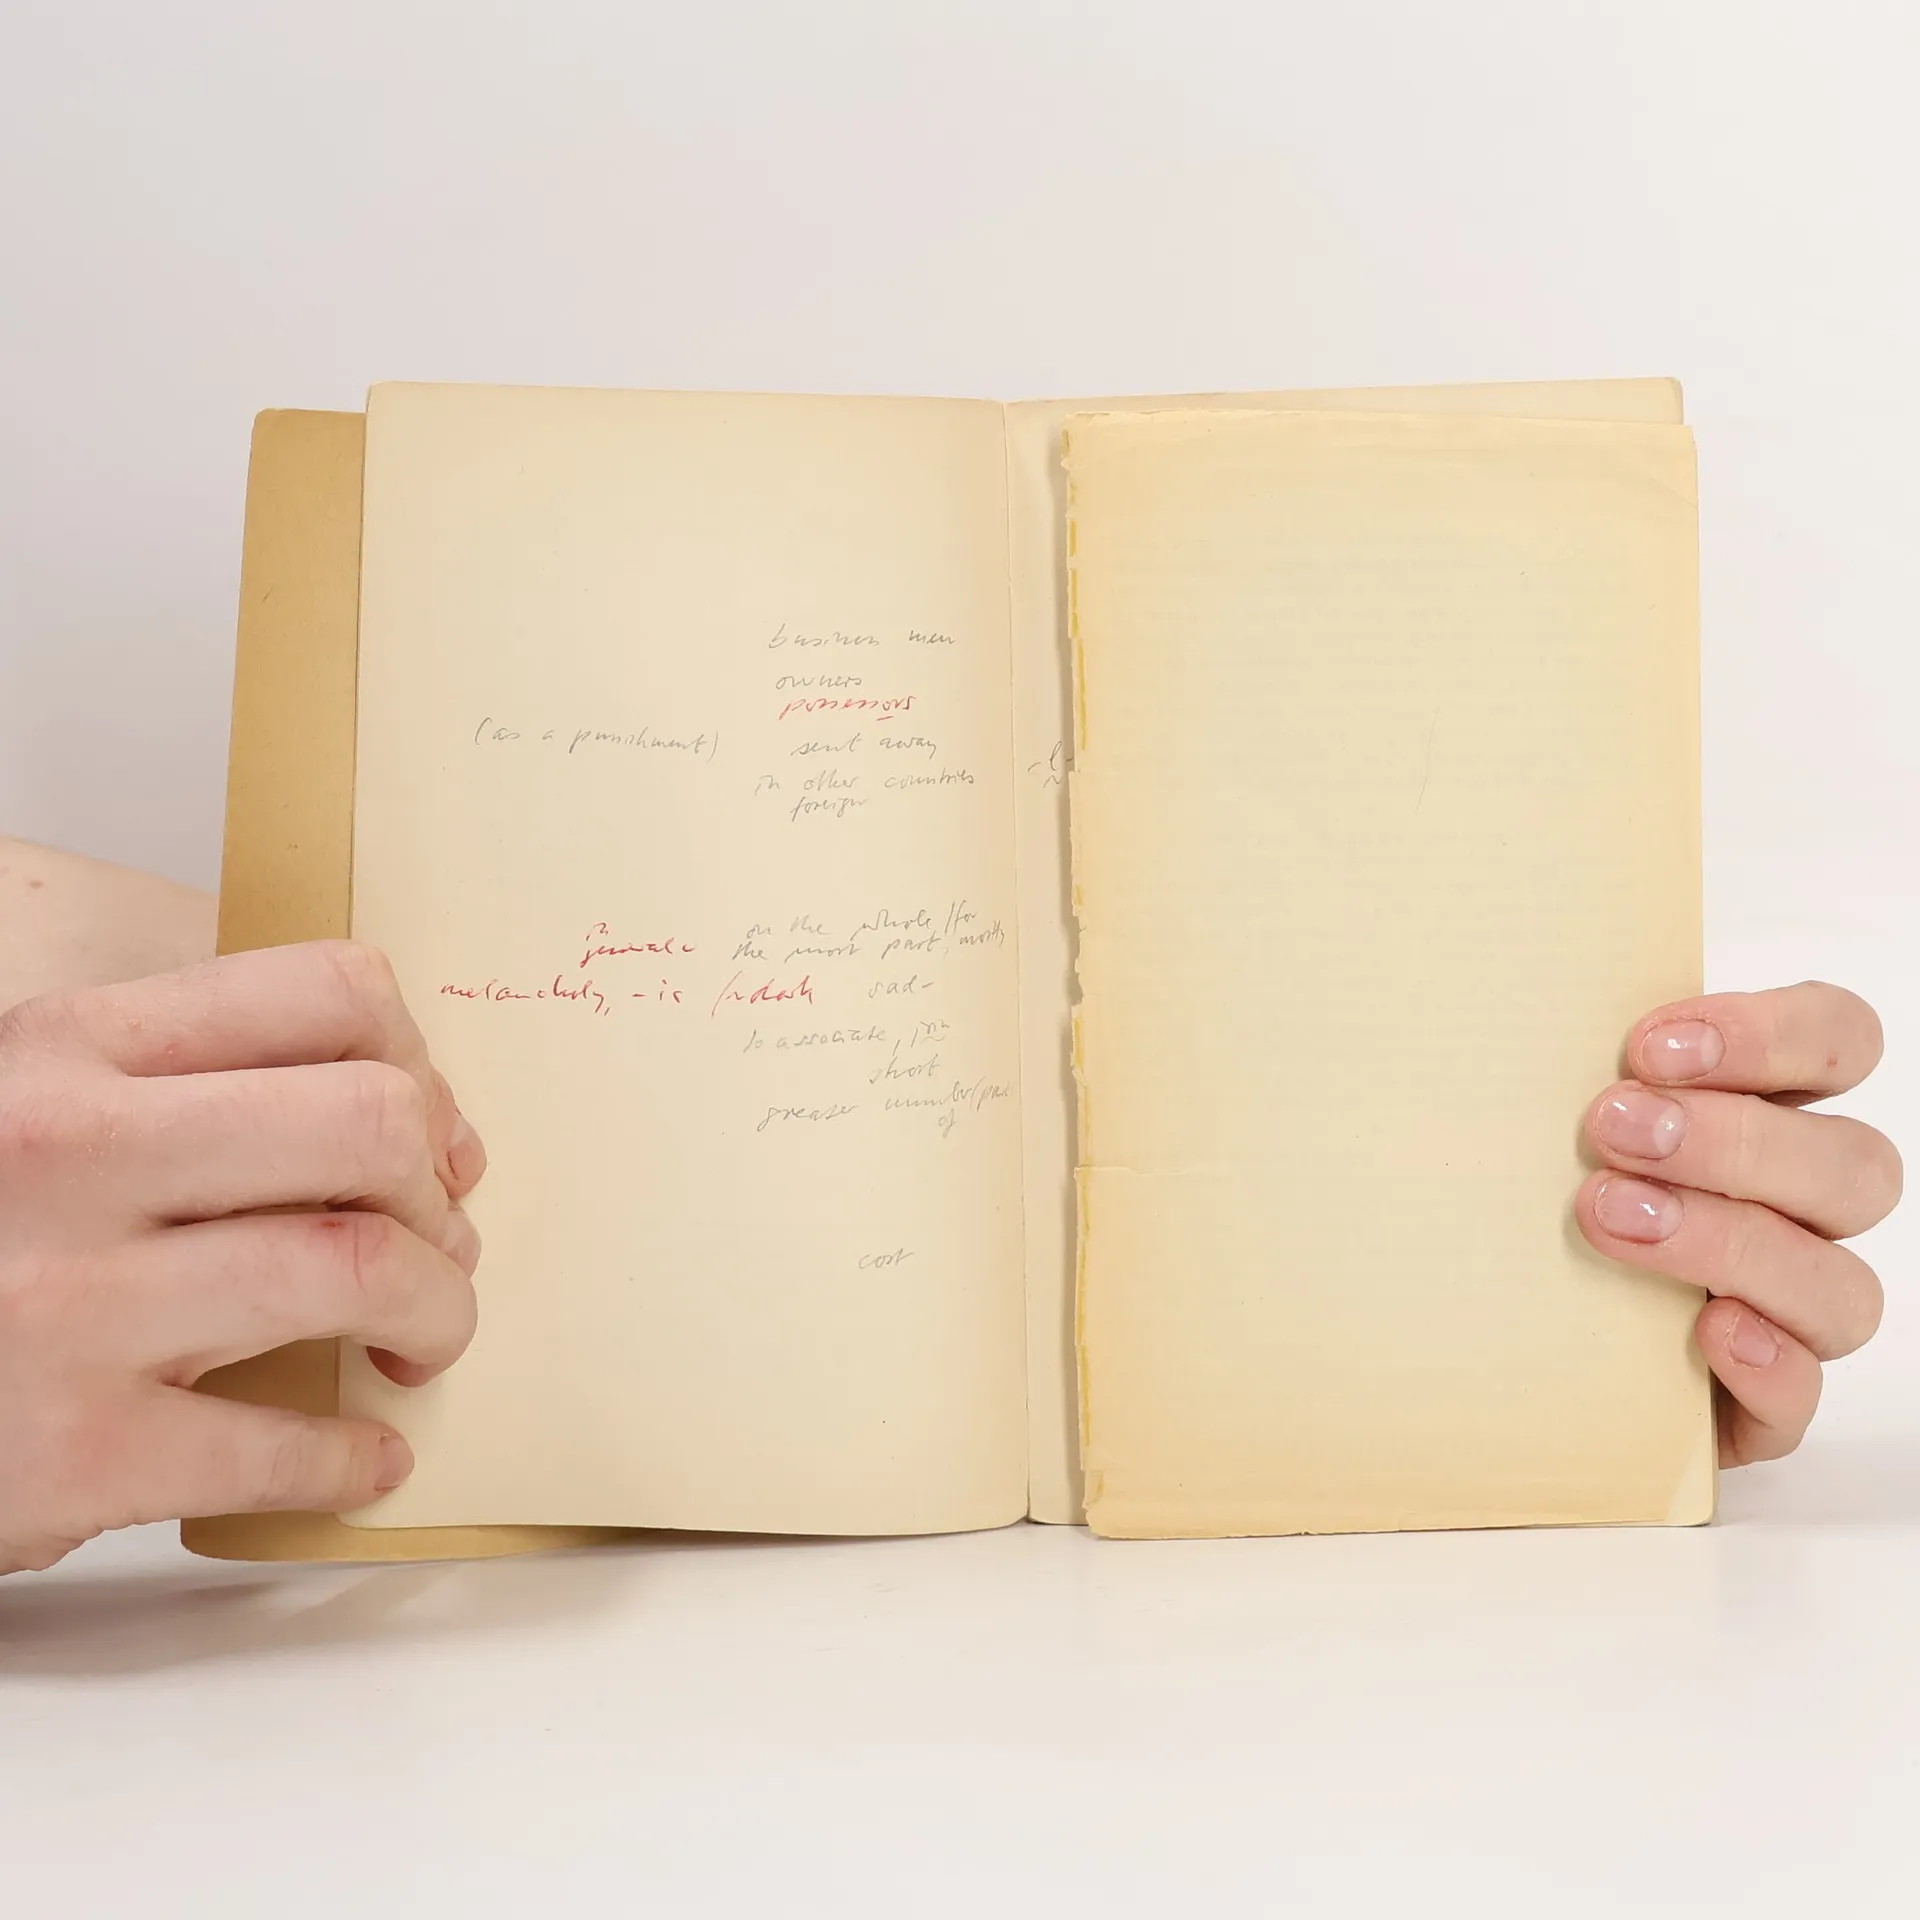 business men
owners
possessors
(as a punishment) sent away
in other countries
foreign
in on the whole / for
general the most part, mostly
melancholy, - is sad-
to associate,
short
greater number/part
of
cost